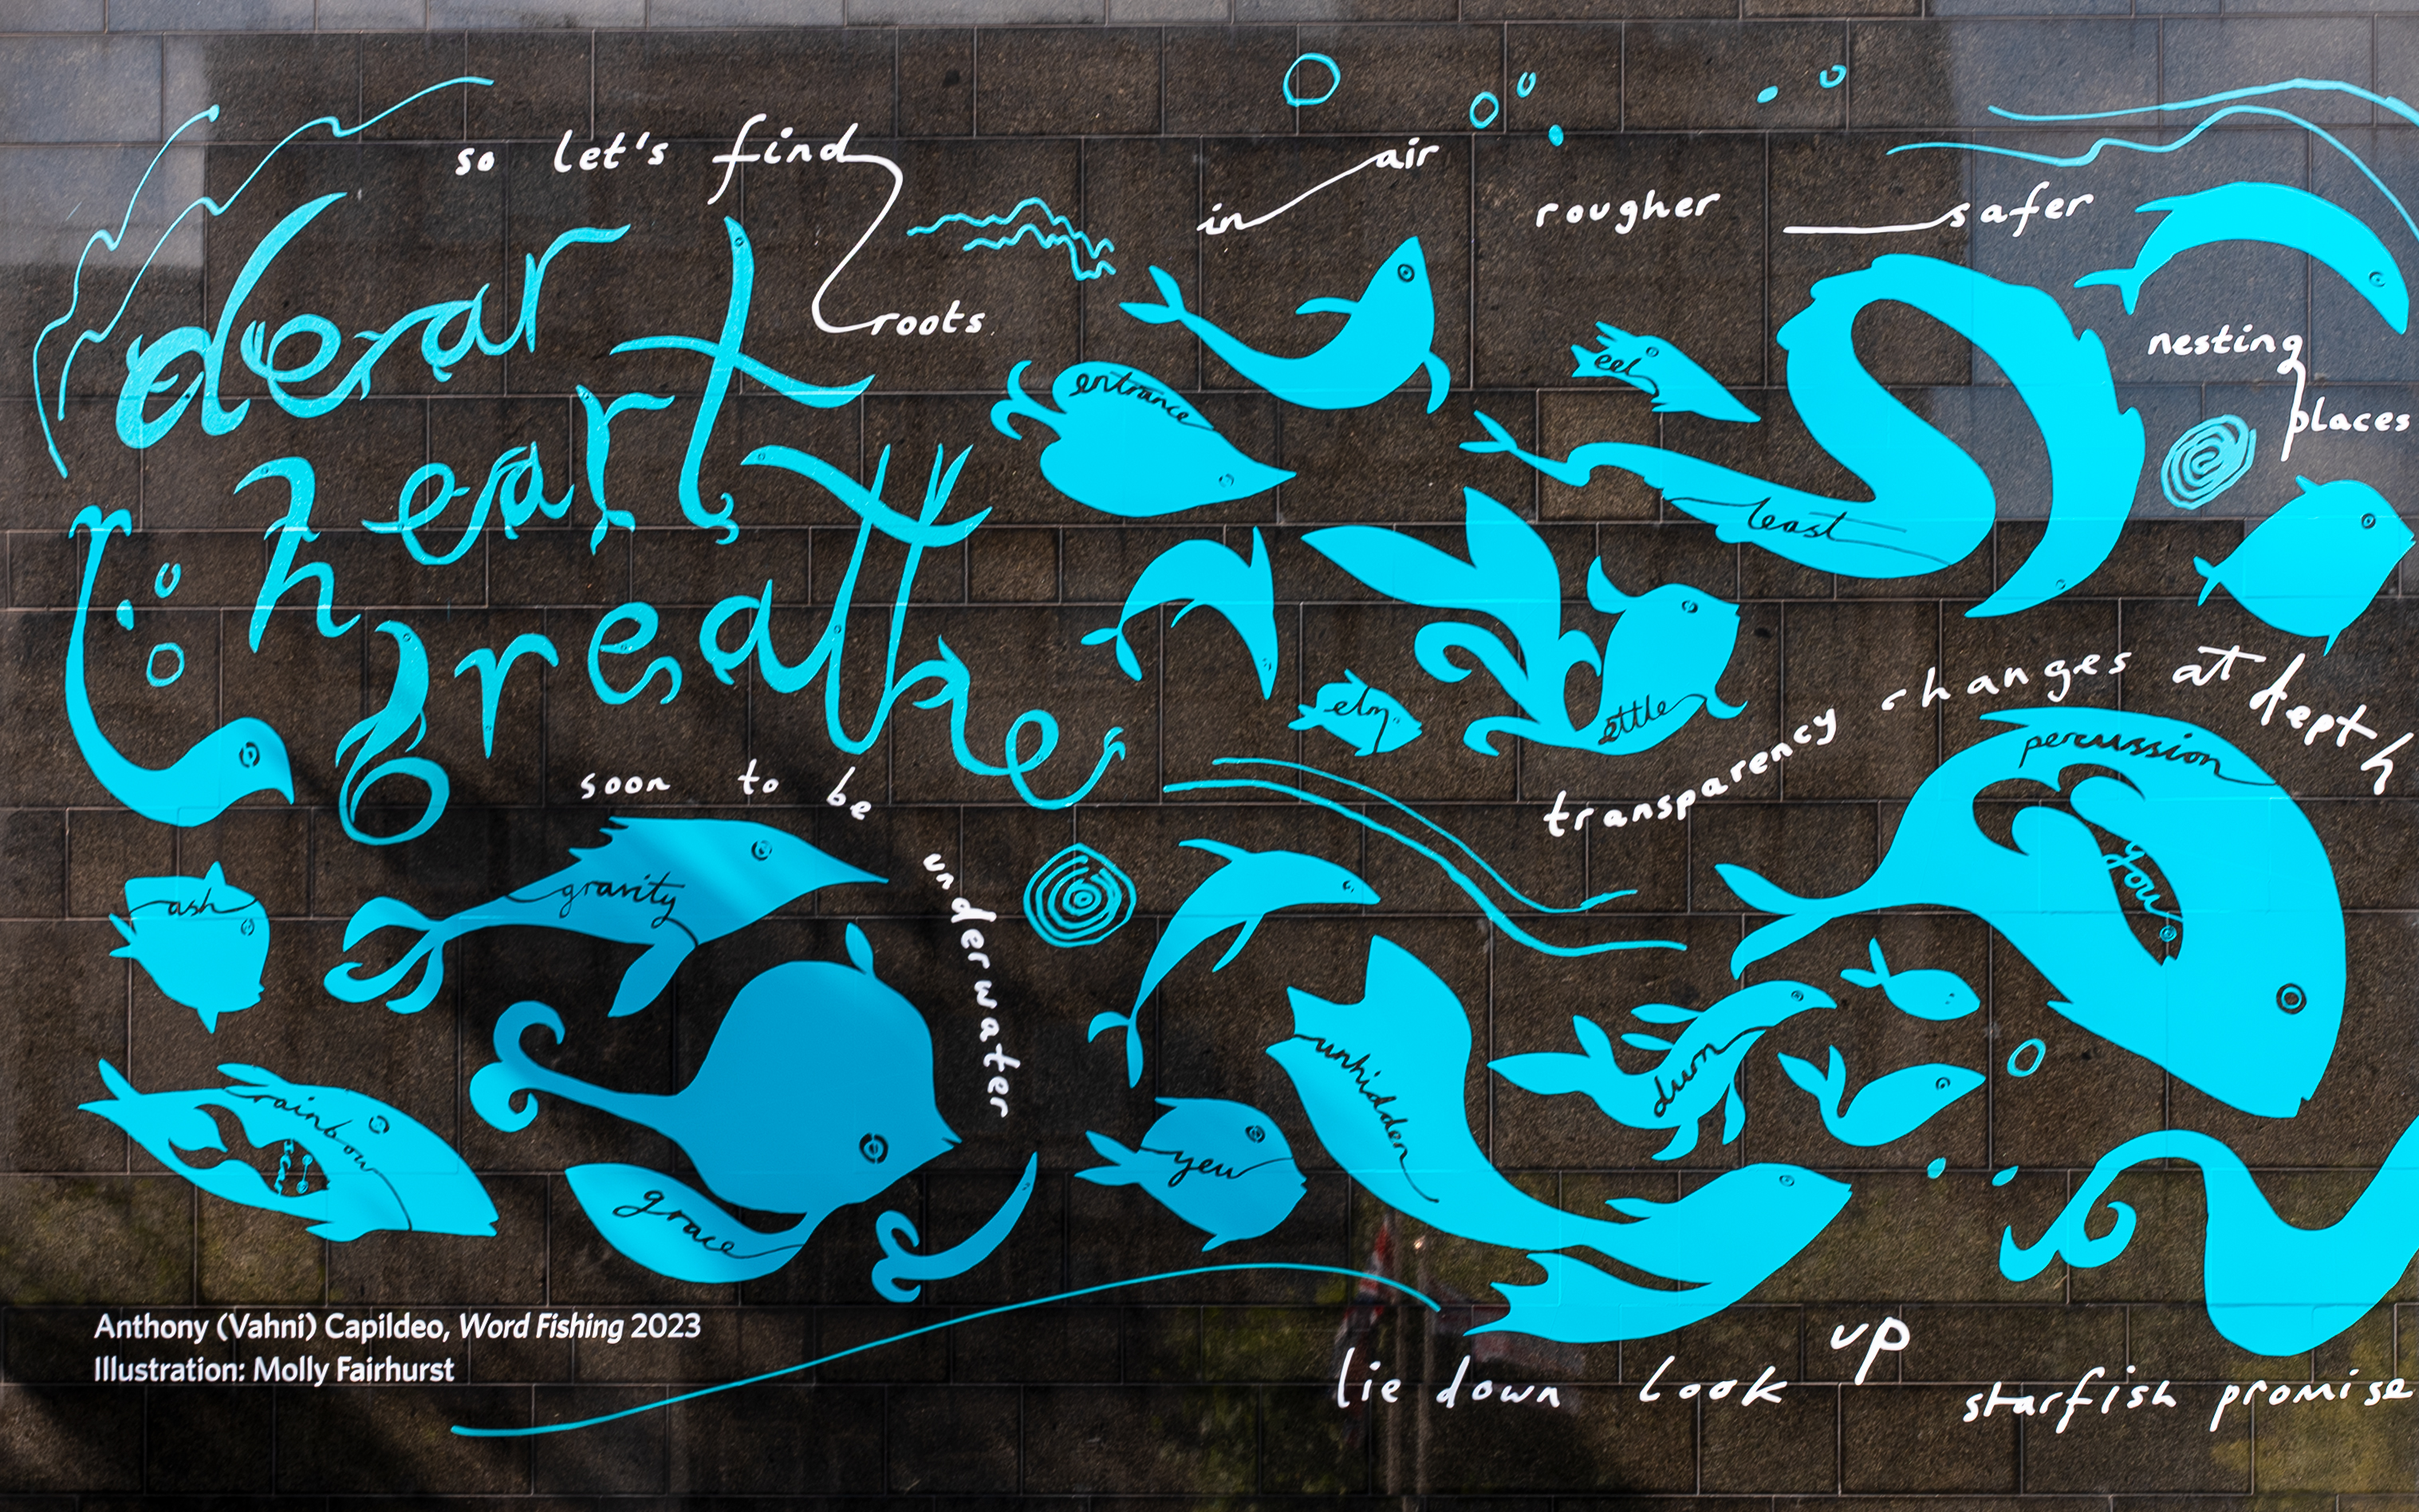 so let's find
roots
in air
rougher safer
nesting
places
dear
heart
breathe
entrance
eel
least
elm
settle
transparency changes at depth
percussion
you
soon to be
underwater
ash
gravity
rainbow
grace
yew
unhidden
lie down look up
starfish promise
Anthony (Vahni) Capildeo, Word Fishing 2023
Illustration: Molly Fairhurst